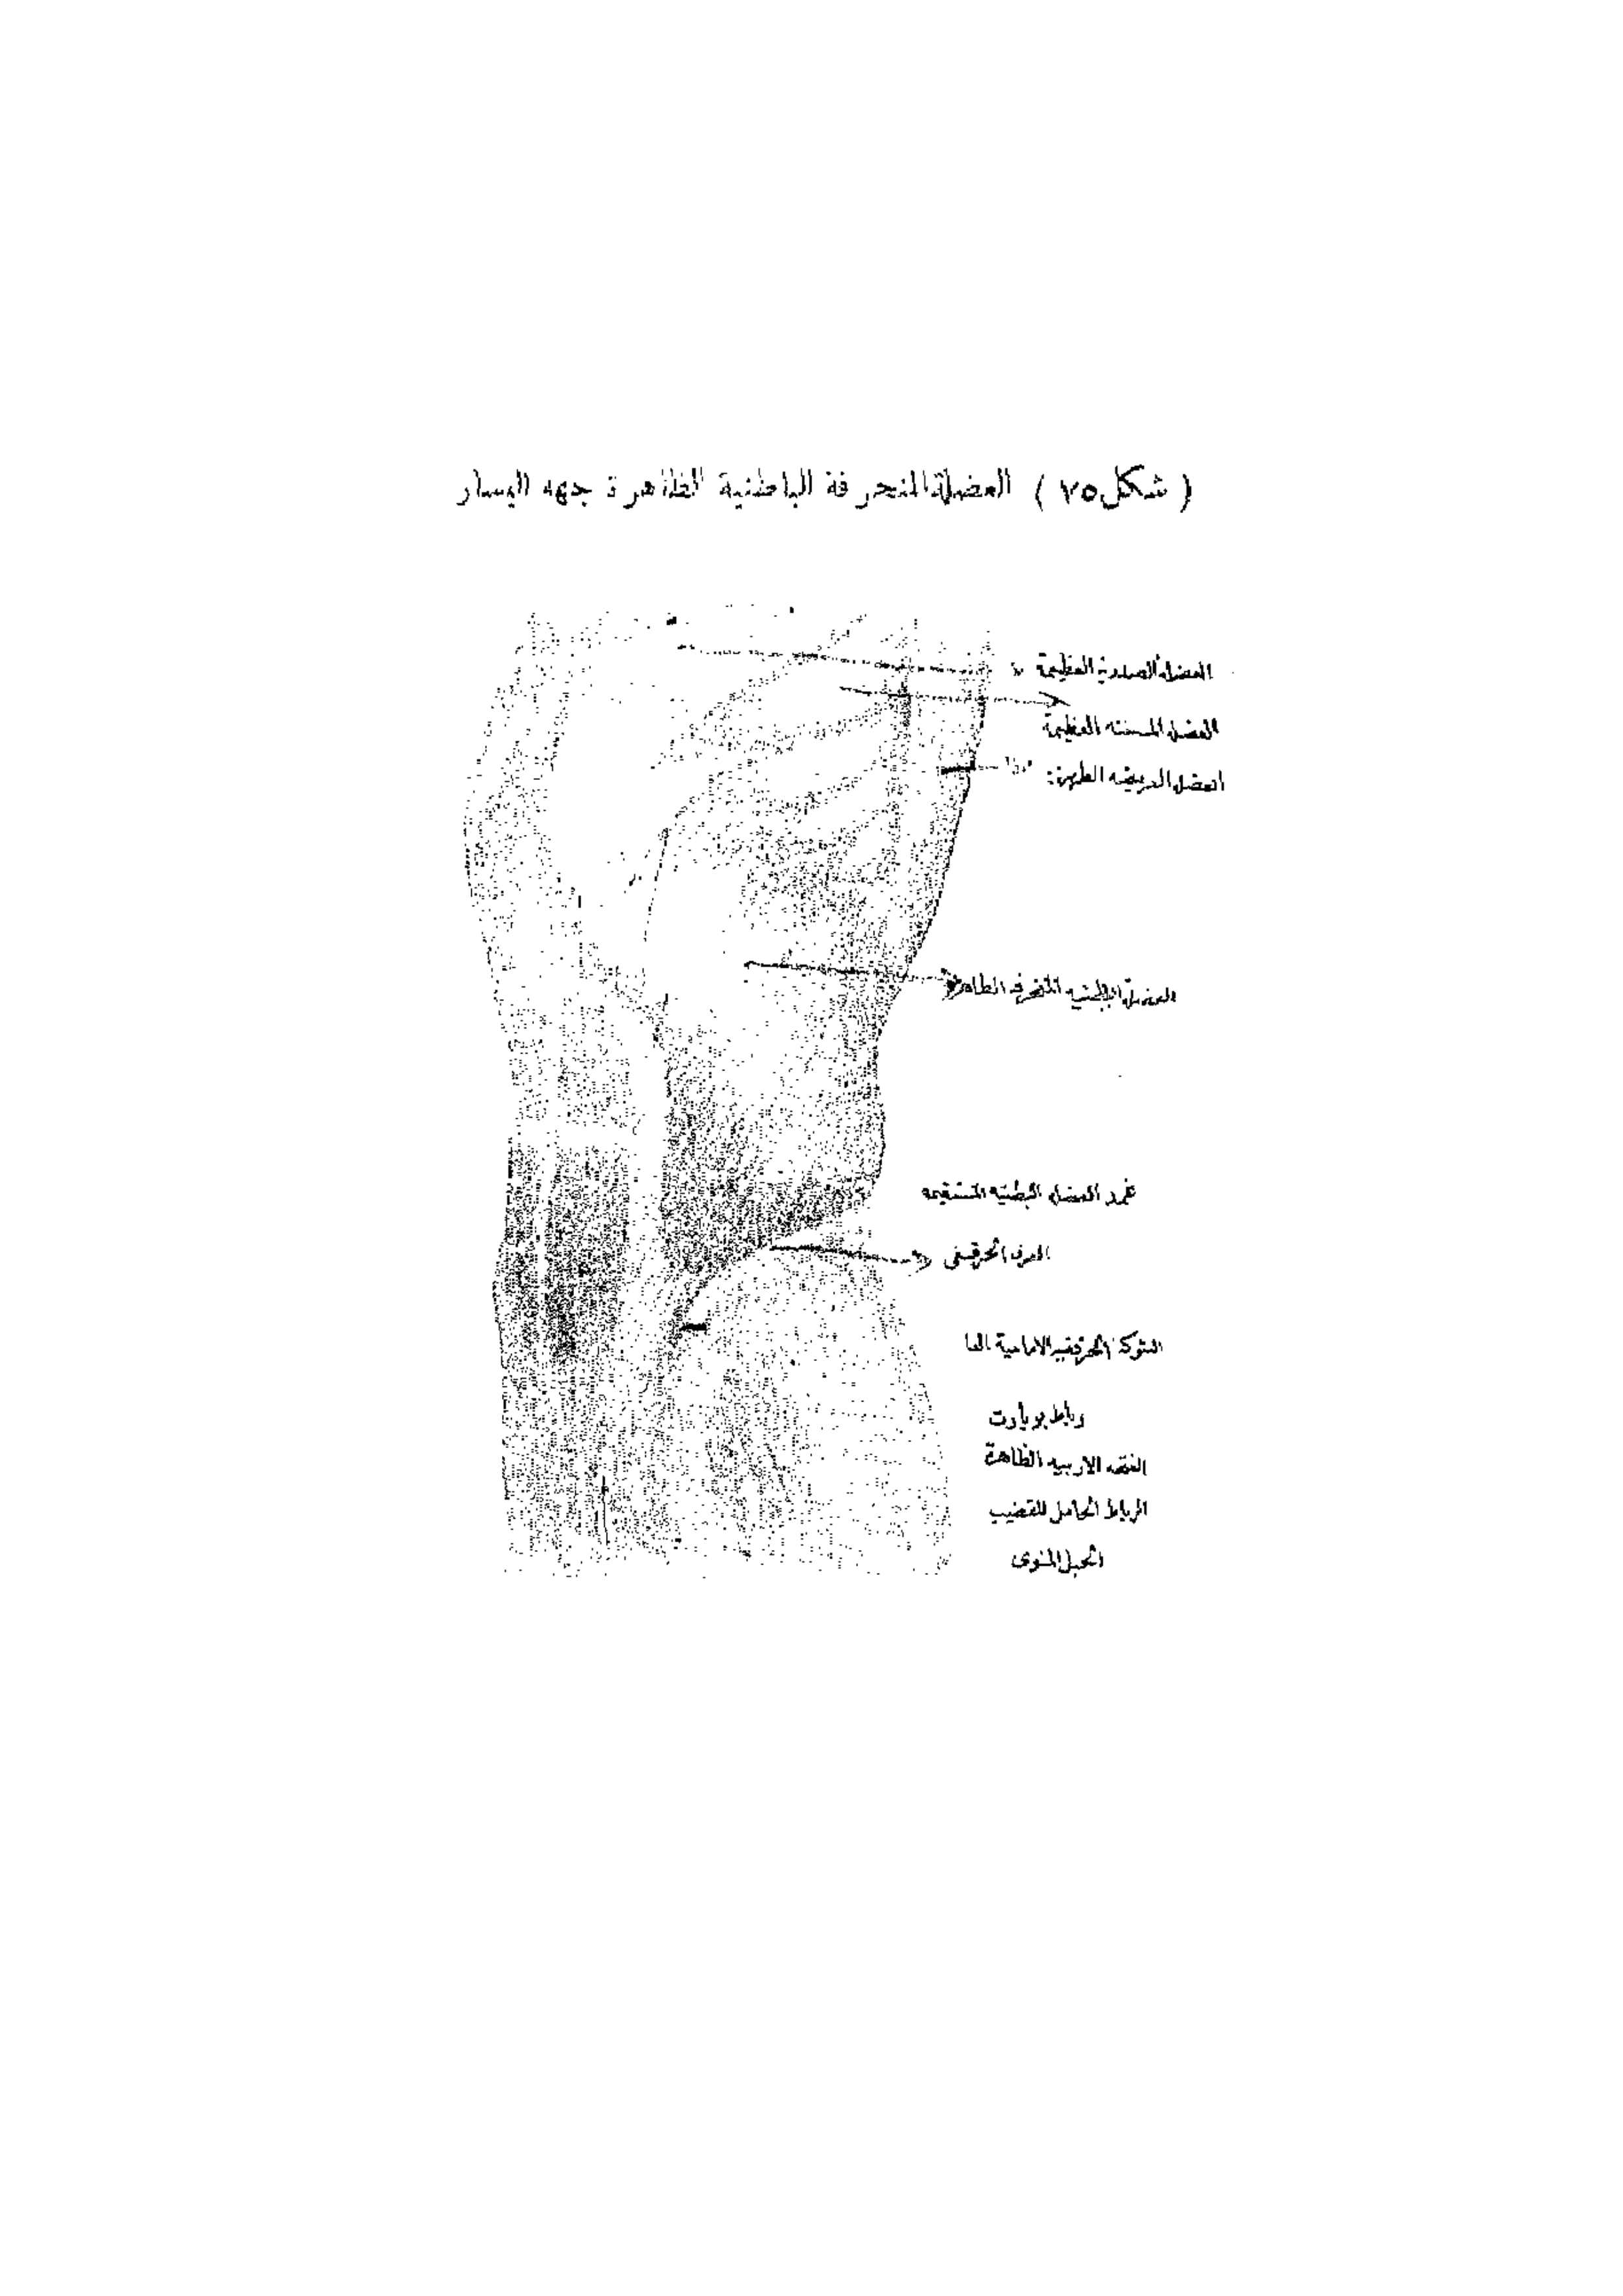 ( شكل ٧٥ ) العضلة المنحرفة الباطنية الظاهرة جهه اليسار
العضله الصدرية العظيمة
العضله المسننه العظيمة
العضله العريضه الظهرية
العضلة البطنيه المنحرفه الظاهرة
غمد العضله البطنيه المستقيمه
العرف الحرقفى
الشوكة الحرقفيه الامامية العليا
رباط بوبارت
الفتحه الاربيه الظاهرة
الرباط الحامل للقضيب
الحبل المنوى